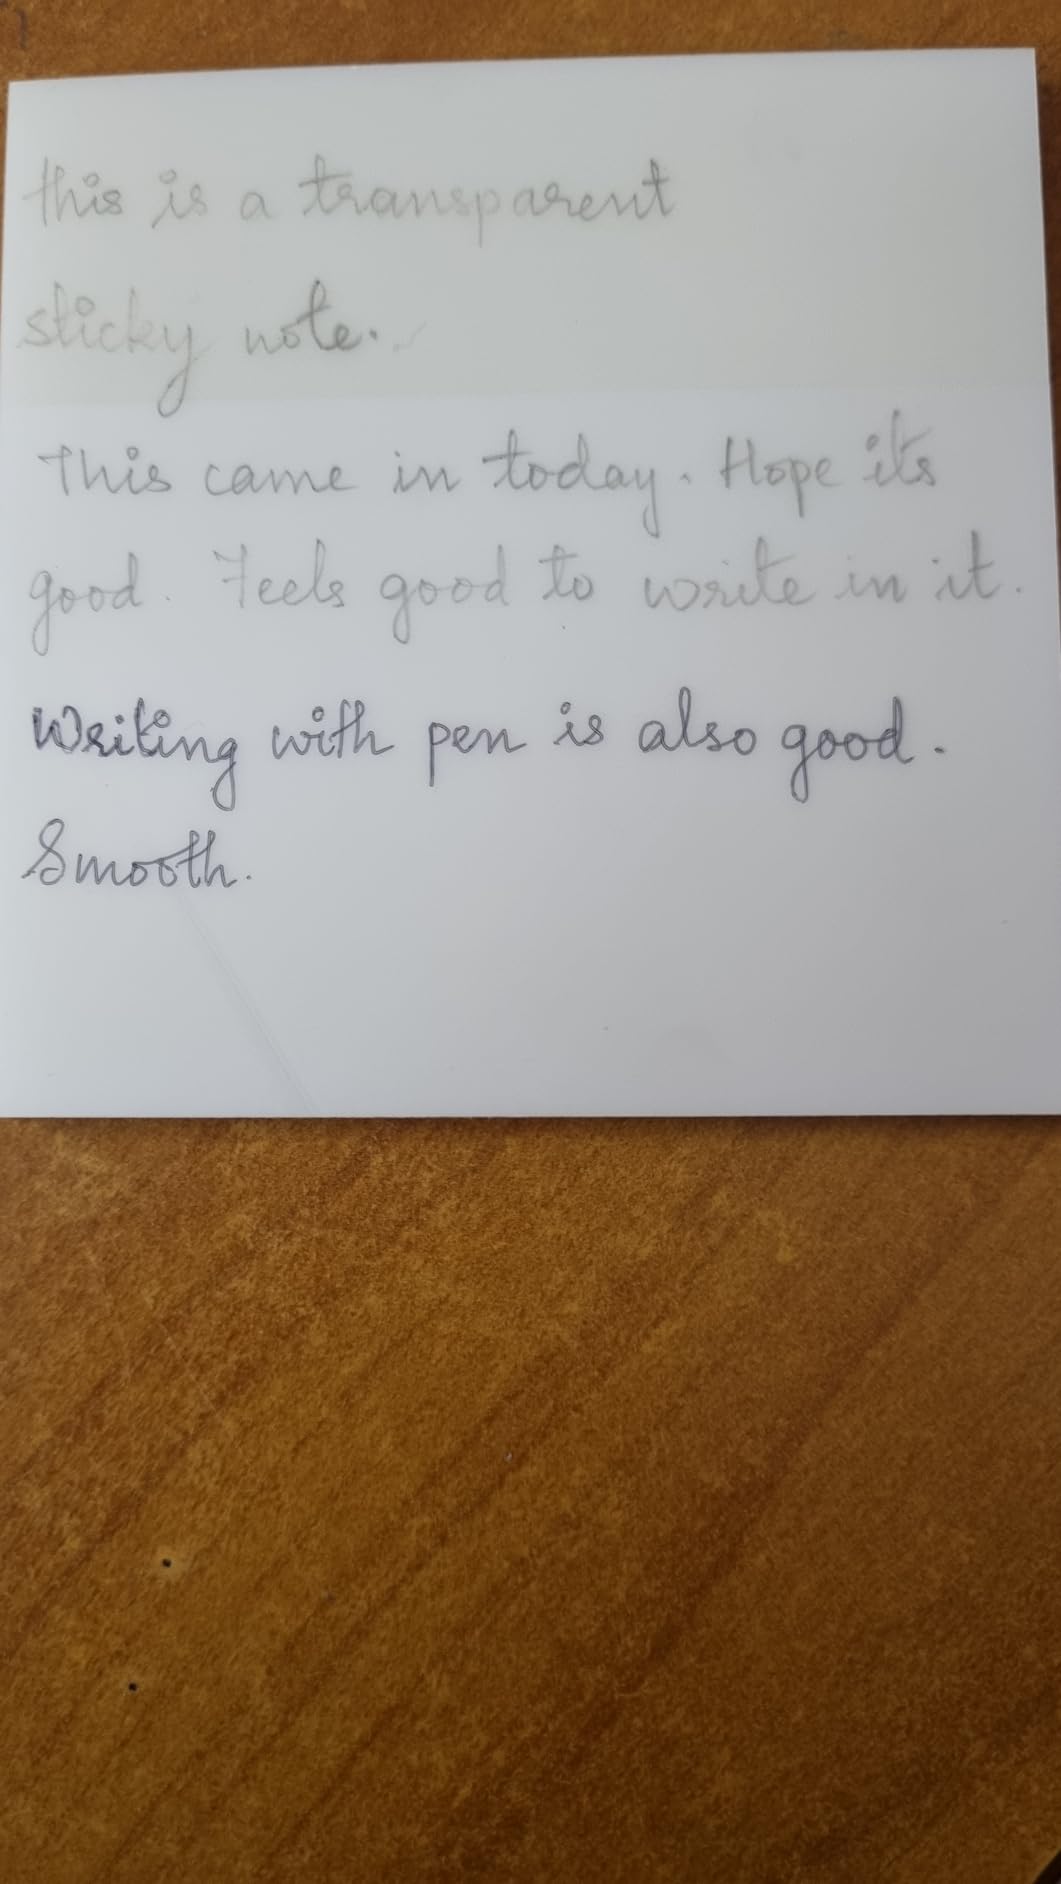 this is a transparent
sticky note.
This came in today. Hope its
good. Feels good to write in it.
Writing with pen is also good.
Smooth.